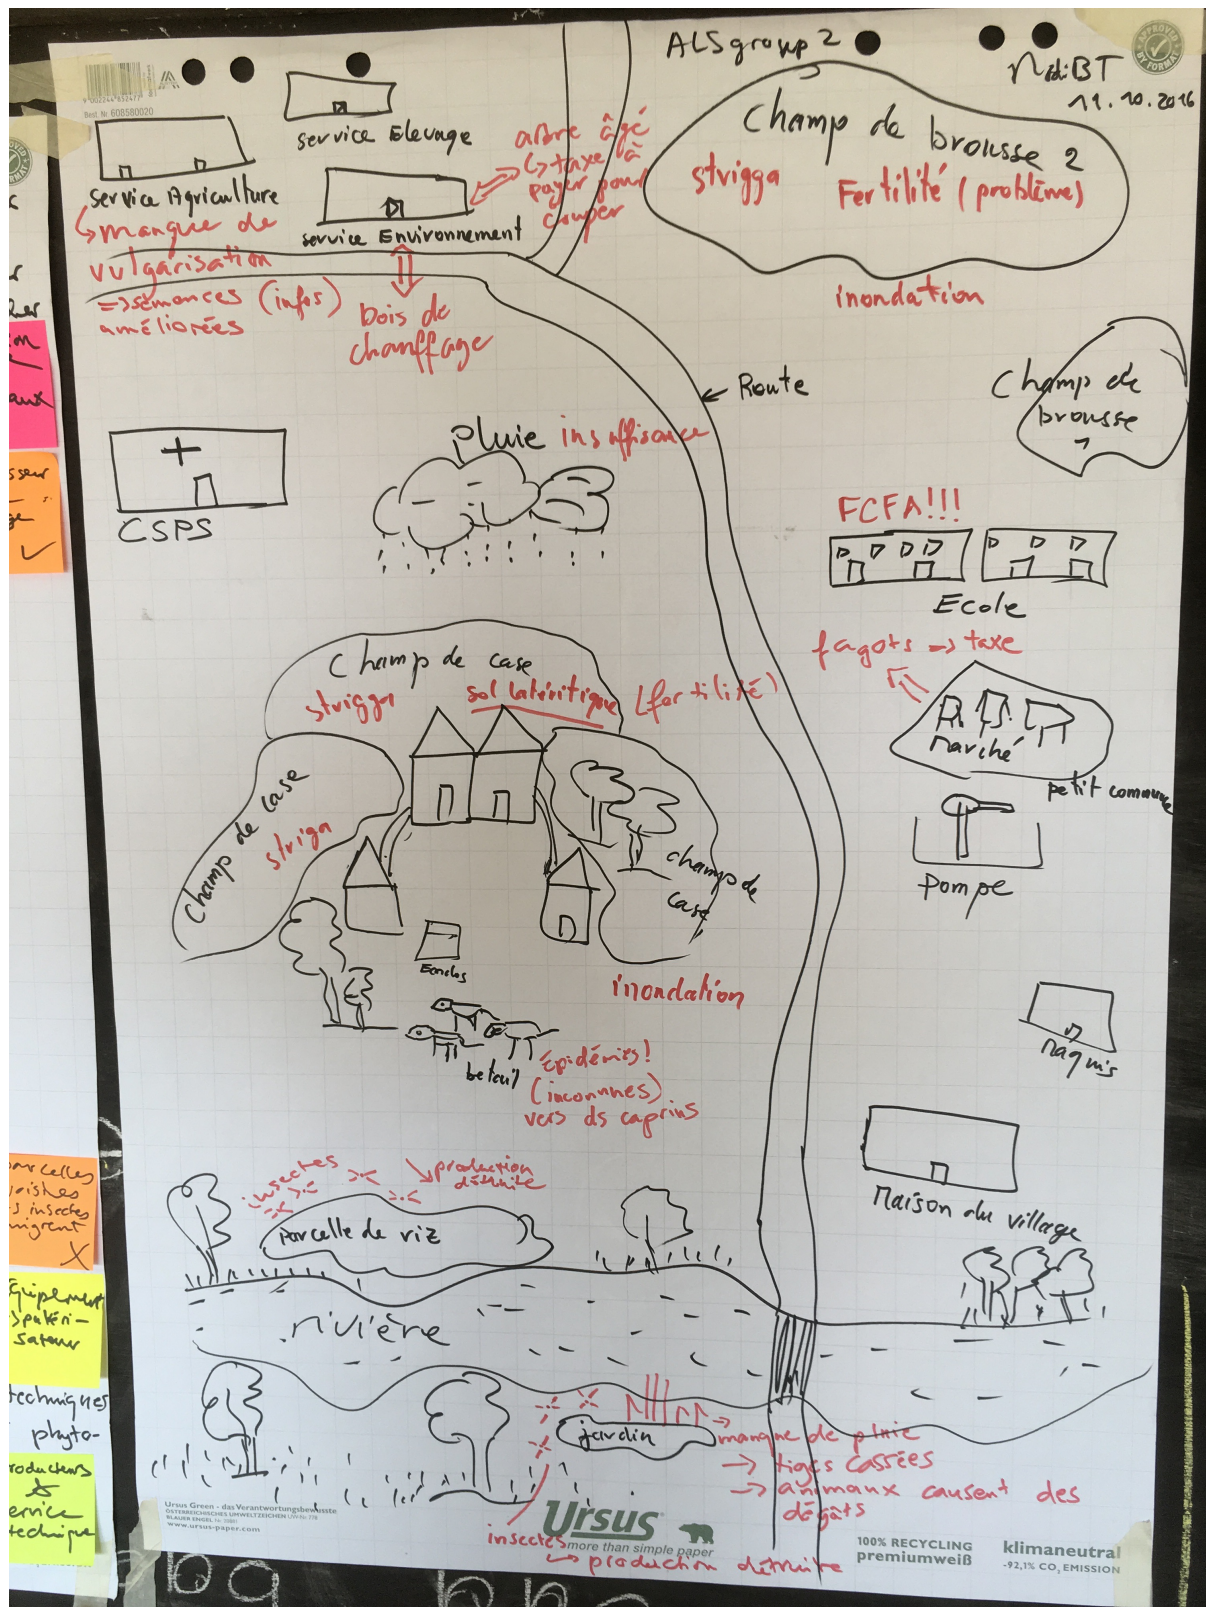 ALS group 2
BT
11.10.2016
APPROVED
BY FORMAT
9 002244 852477
Best. Nr. 608580020
service Elevage
service Agriculture
↳ manque de
vulgarisation
=> sémences (infos)
améliorées
service Environnement
arbre âgé
↳ taxe à
payer pour
couper
bois de
chauffage
Champ de
brousse 2
strigga
Fertilité (problème)
inondation
Champ de
brousse
1
← Route
CSPS
pluie insuffisance
FCFA!!!
Ecole
fagots => taxe
Marché
petit commune
Pompe
Champ de case
strigga
sol latéritique (fertilité)
Champ de case
striga
champ de
case
inondation
Enclos
betail
épidémies!
(inconnues)
vers ds caprins
Maquis
Maison du village
insectes
production
détruite
parcelle de riz
rivière
jardin
manque de pluie
→ tiges cassées
→ animaux causent des
dégâts
insectes
↳ production détruite
Ursus Green - das Verantwortungsbewusste
ÖSTERREICHISCHES UMWELTZEICHEN
BLAUER ENGEL
www.ursus-paper.com
Ursus
more than simple paper
100% RECYCLING
premiumweiß
klimaneutral
-92,1% CO₂ EMISSION
aux
parcelles
insectes
X
sateur
techniques
phyto-
service
technique